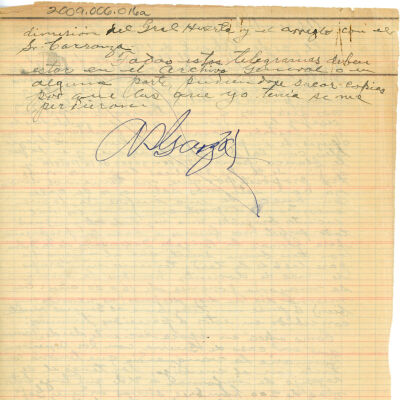 2009.006.016a
dimision del Gral Huerta y el arreglo con el
Sr Carranza.
Todos estos telegramas deben
estar en el archivo General o en
alguna parte pudiendose sacar copias
por que las que yo tenia se me
perdieron